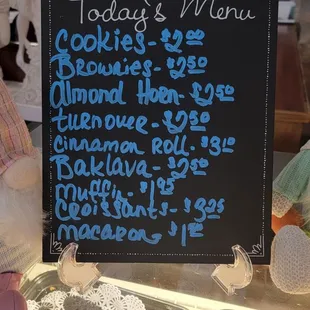 Today's Menu
Cookies - $2.00
Brownies - $2.50
Almond Horn - $2.50
turnover - $2.50
Cinnamon Roll - $3.10
Baklava - $2.50
muffin - $1.95
Croissants - $3.25
macaron - $1.